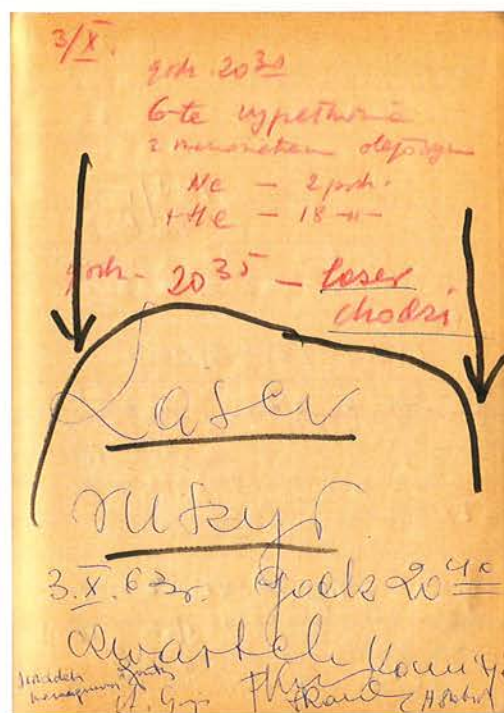 3/X.
godz. 20³⁰
6-te wypełnienie
z manometrem olejowym
Ne — 2 podz.
+He — 18 -"-
godz. 20³⁵ — laser
chodzi
Laser
ruszył
3.X.63r. godz 20⁴⁰
czwartek